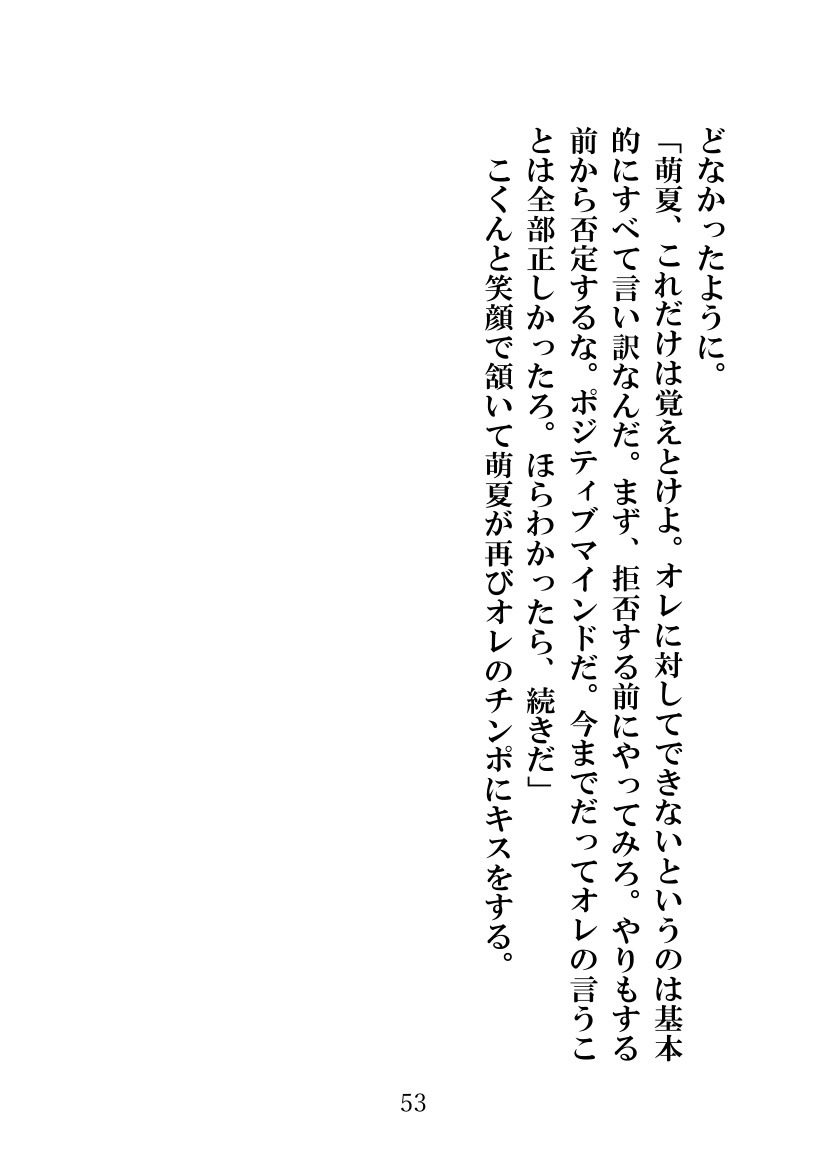 どなかったように。
「萌夏、これだけは覚えとけよ。オレに対してできないというのは基本
的にすべて言い訳なんだ。まず、拒否する前にやってみろ。やりもする
前から否定するな。ポジティブマインドだ。今までだってオレの言うこ
とは全部正しかったろ。ほらわかったら、続きだ」
　こくんと笑顔で頷いて萌夏が再びオレのチンポにキスをする。
53